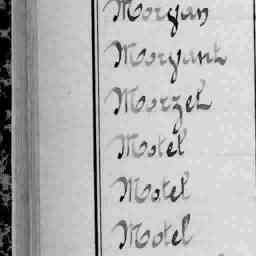 Morgan
Morgant
Morzel
Motel
Motel
Motel